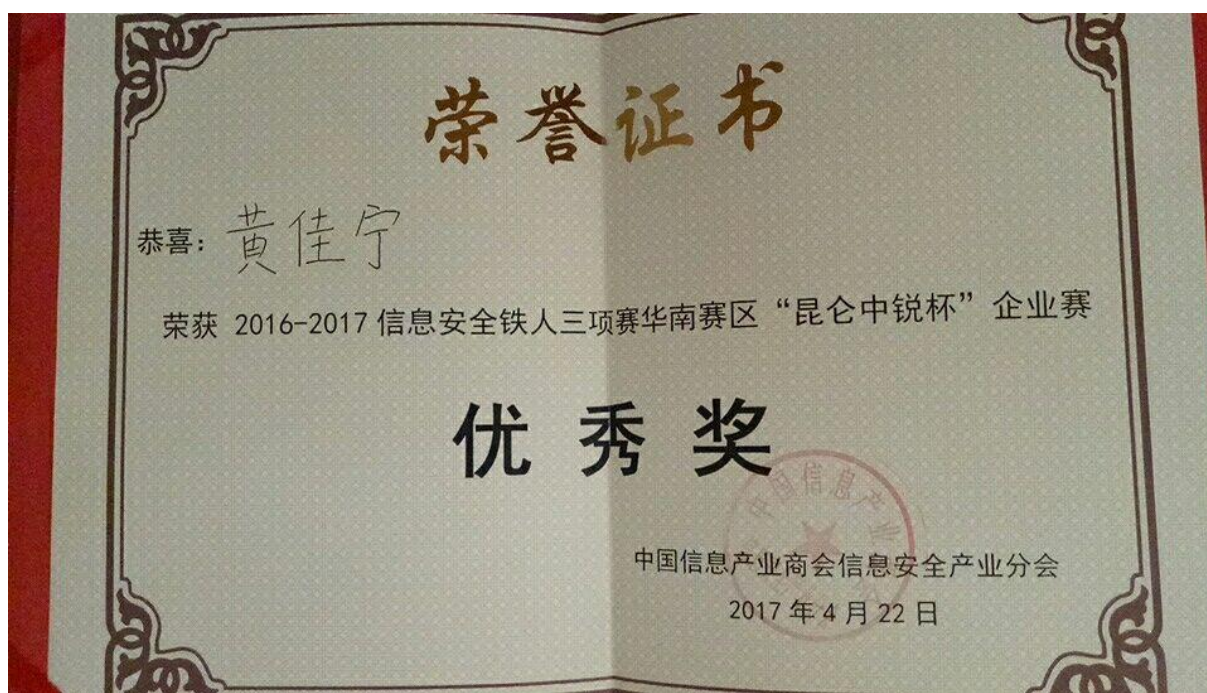 荣誉证书
恭喜：黄佳宁
荣获 2016-2017 信息安全铁人三项赛华南赛区“昆仑中锐杯”企业赛
优秀奖
中国信息产业
中国信息产业商会信息安全产业分会
2017 年 4 月 22 日